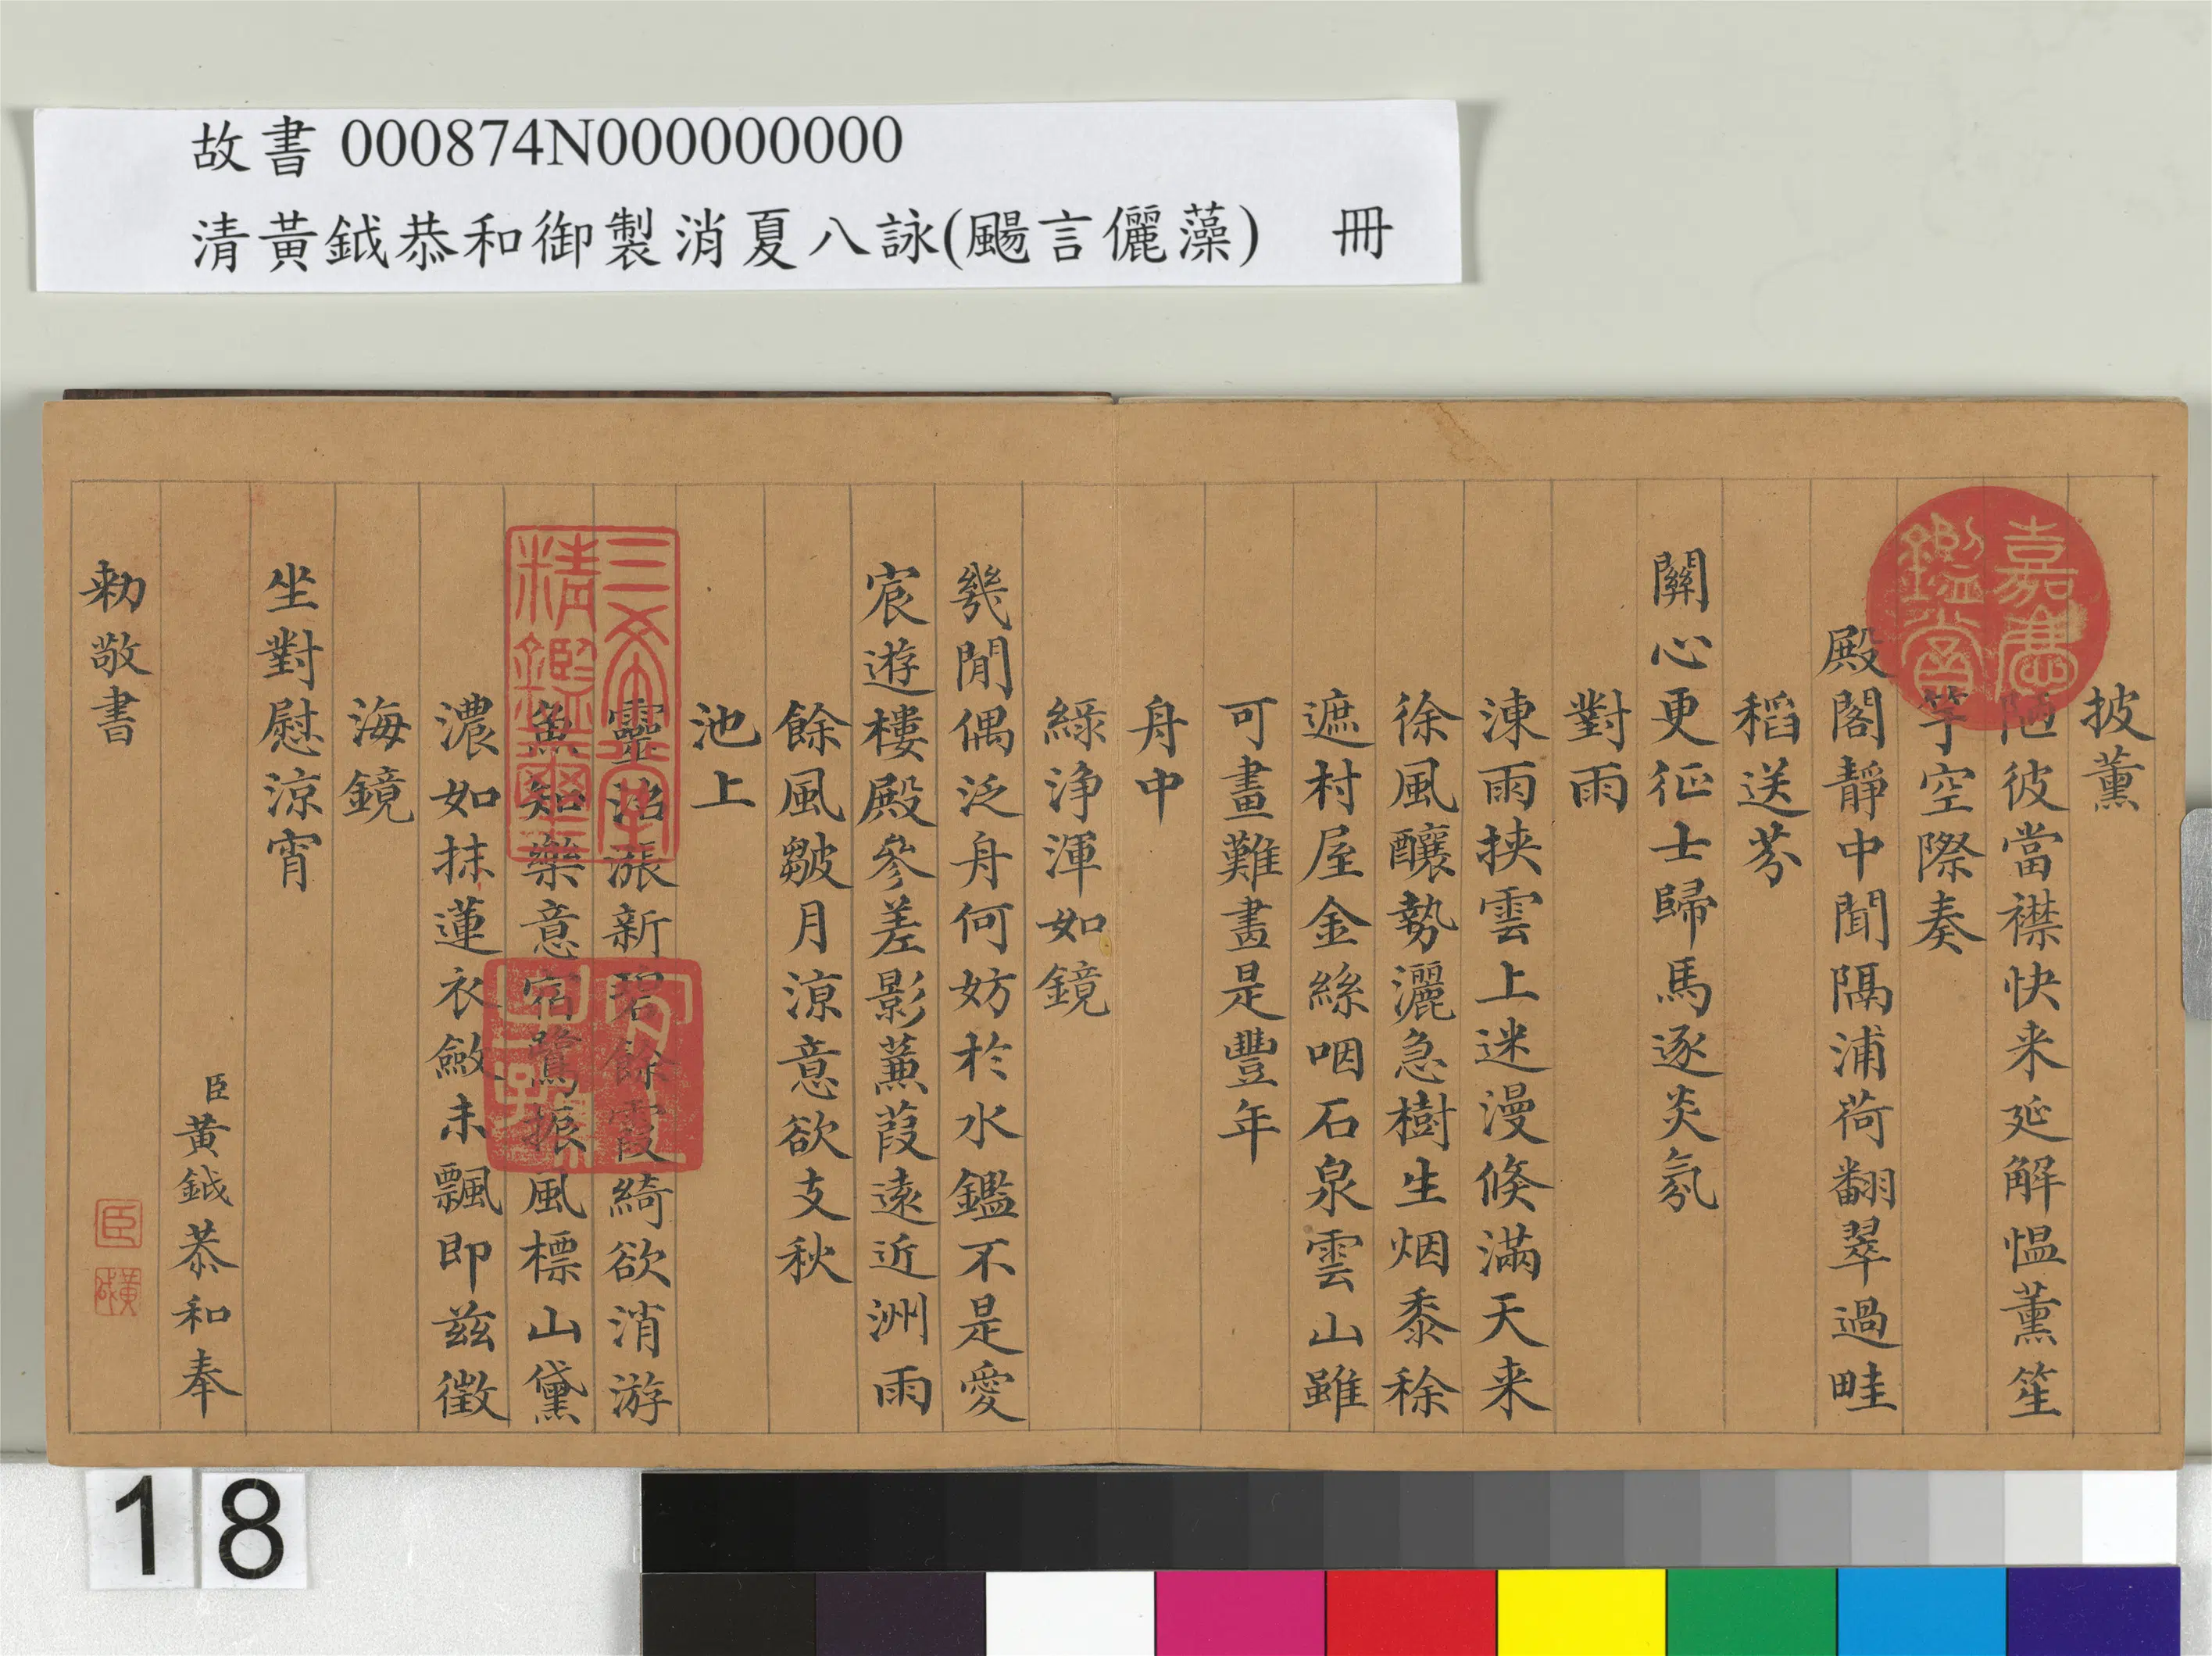 故書 000874N000000000
清黃鉞恭和御製消夏八詠(颺言儷藻) 冊
披薰
陋彼當襟快来延解愠薰笙
竽空際奏
殿閣靜中聞隔浦荷翻翠過畦
稻送芬
關心更征士歸馬逐炎氛
對雨
涷雨挾雲上迷漫倐滿天来
徐風釀勢灑急樹生烟黍稌
遮村屋金絲咽石泉雲山雖
可畫難畫是豐年
舟中
綠淨渾如鏡
幾閒偶泛舟何妨於水鑑不是愛
宸遊樓殿參差影蒹葭遠近洲雨
餘風皺月涼意欲支秋
池上
靈沼漲新碧餘霞綺欲消游
魚知樂意宿鷺振風標山黛
濃如抹蓮衣斂未飄即茲徵
海鏡
坐對慰涼宵
臣黃鉞恭和奉
勑敬書
嘉慶鑑賞
三希堂精鑑璽
宜子孫
臣